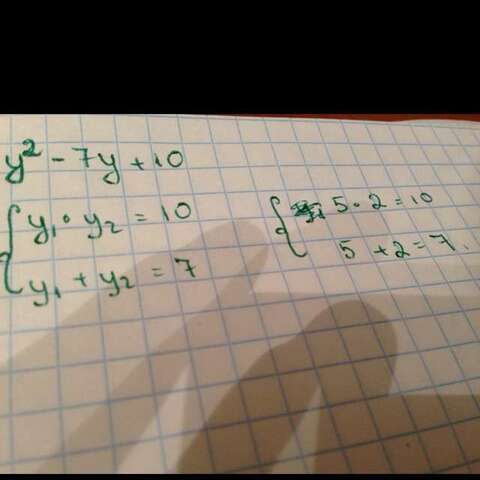 y² - 7y + 10
y₁ · y₂ = 10
y₁ + y₂ = 7
5 · 2 = 10
5 + 2 = 7.